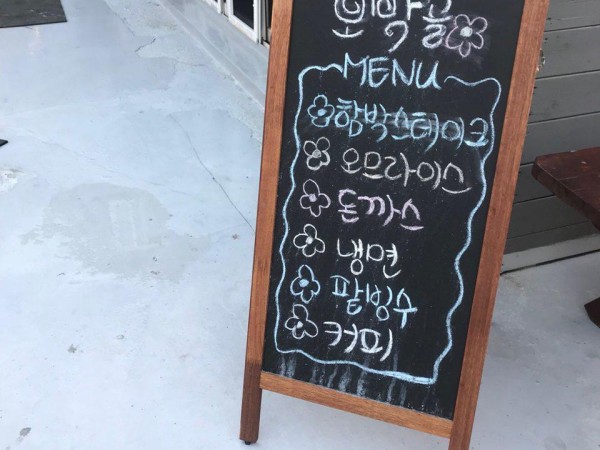 호박골
MENU
함박스테이크
오므라이스
돈까스
냉면
팥빙수
커피